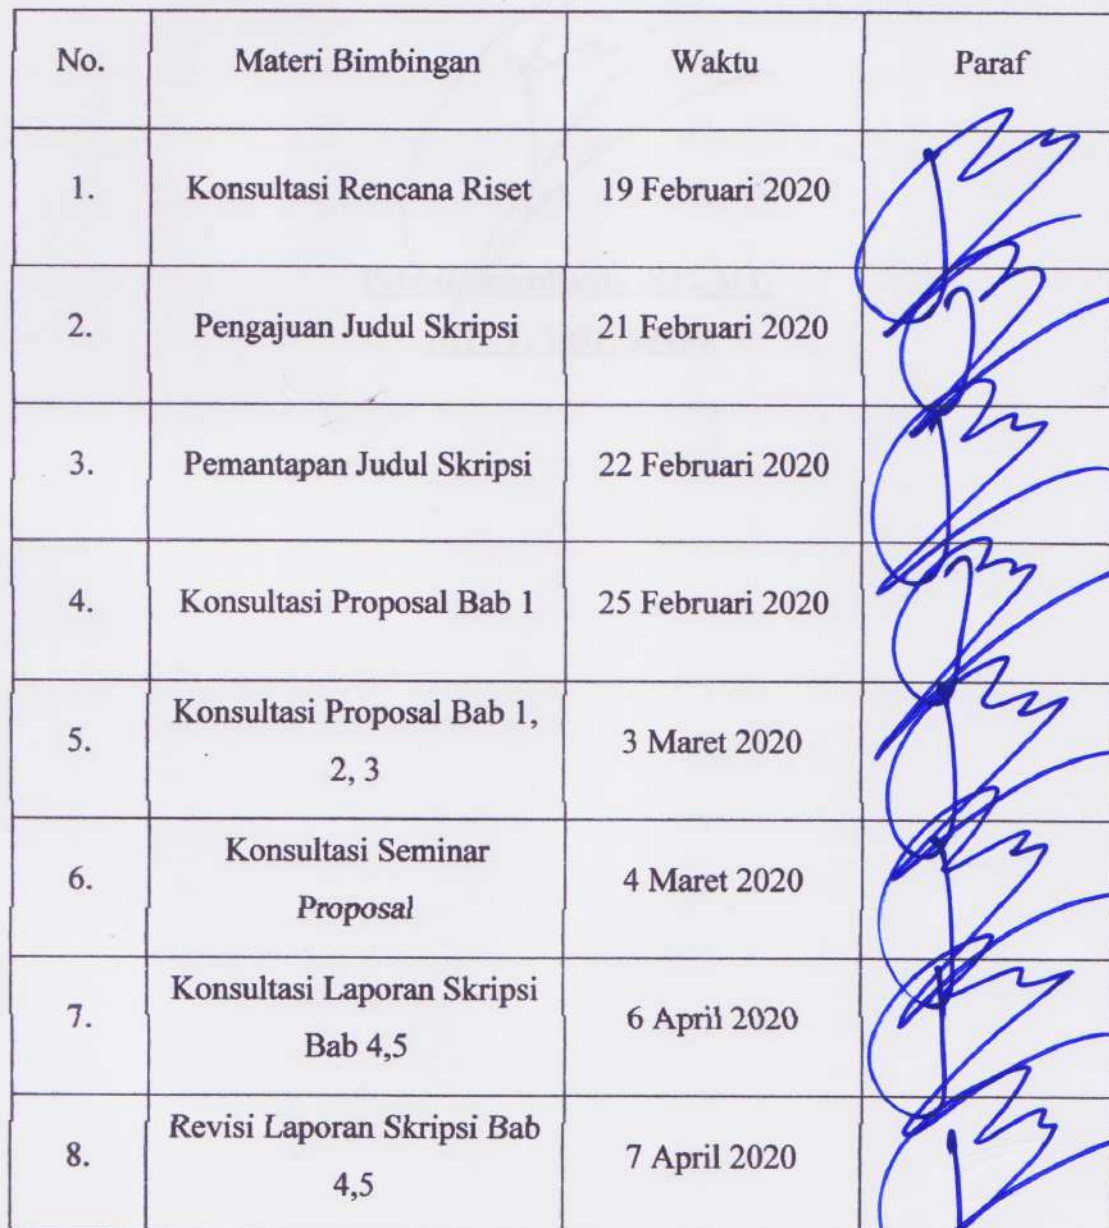 No. Materi Bimbingan Waktu Paraf
1. Konsultasi Rencana Riset 19 Februari 2020
2. Pengajuan Judul Skripsi 21 Februari 2020
3. Pemantapan Judul Skripsi 22 Februari 2020
4. Konsultasi Proposal Bab 1 25 Februari 2020
5. Konsultasi Proposal Bab 1,
2, 3
3 Maret 2020
6. Konsultasi Seminar
Proposal
4 Maret 2020
7. Konsultasi Laporan Skripsi
Bab 4,5
6 April 2020
8. Revisi Laporan Skripsi Bab
4,5
7 April 2020